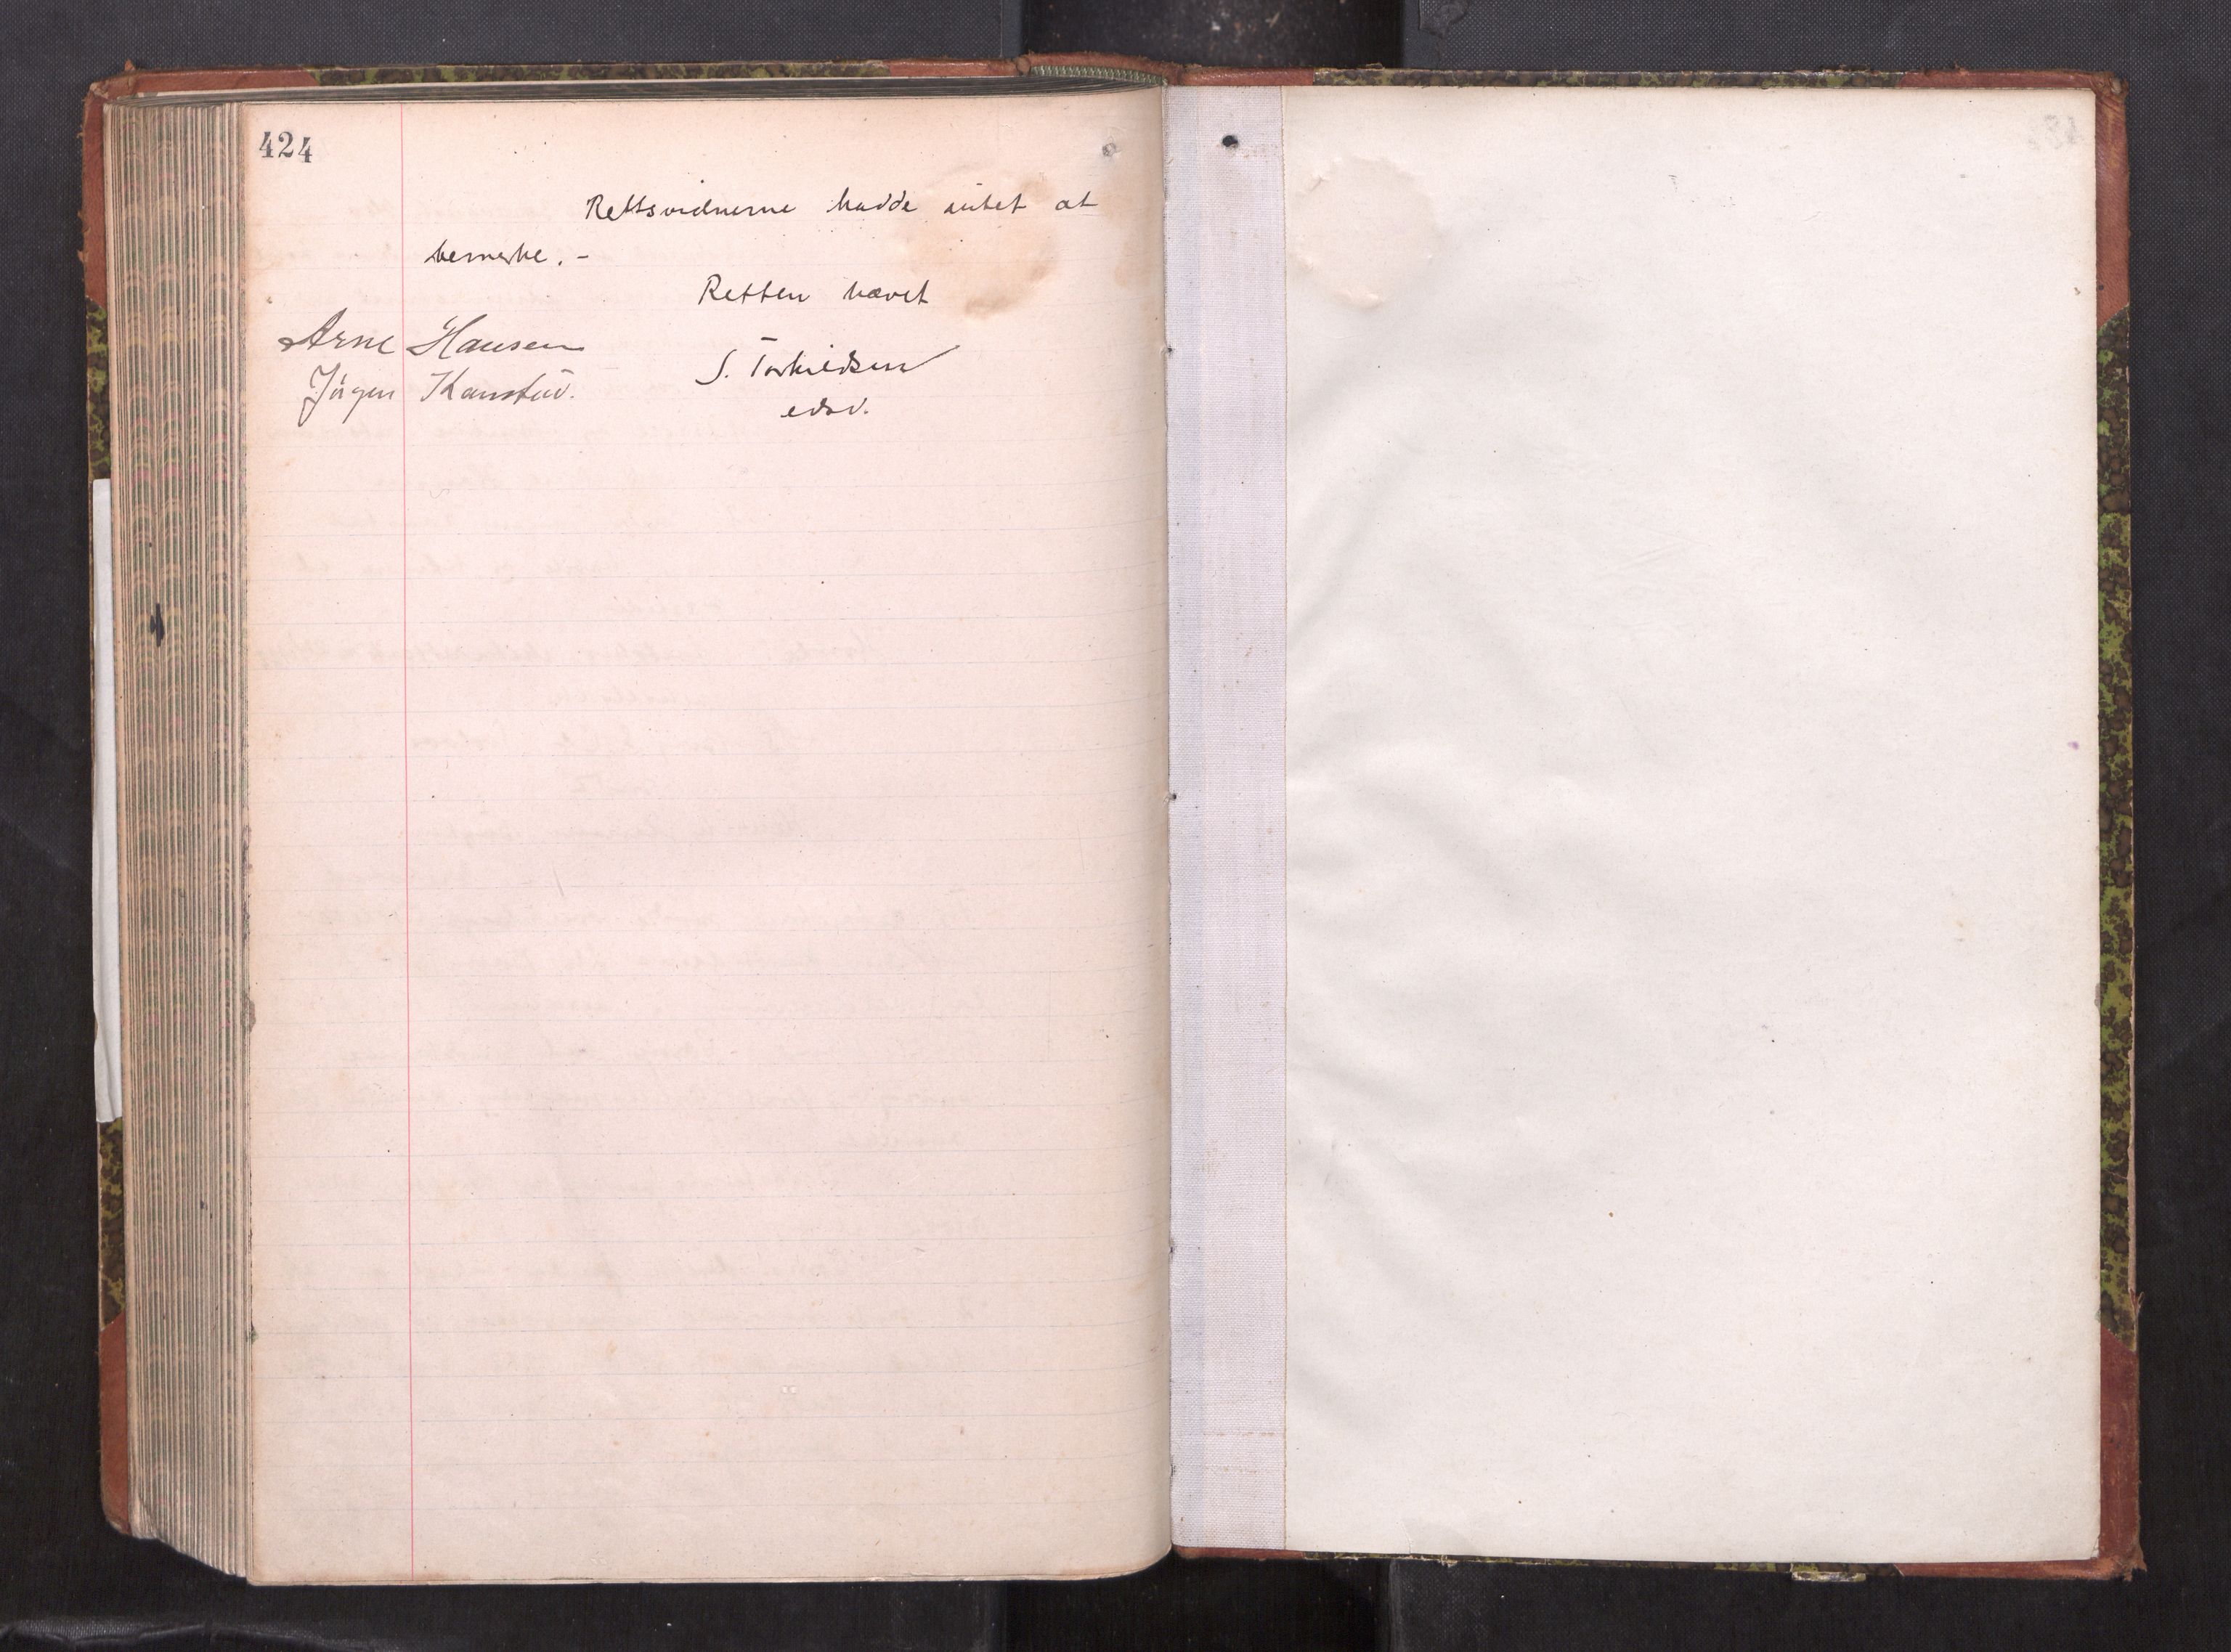 424
Rettsvidnerne hadde intet at
bemerke. -
Retten hævet
Arne Hansen
Jörgen Kanstad.
S. Torkildsen
edsv.